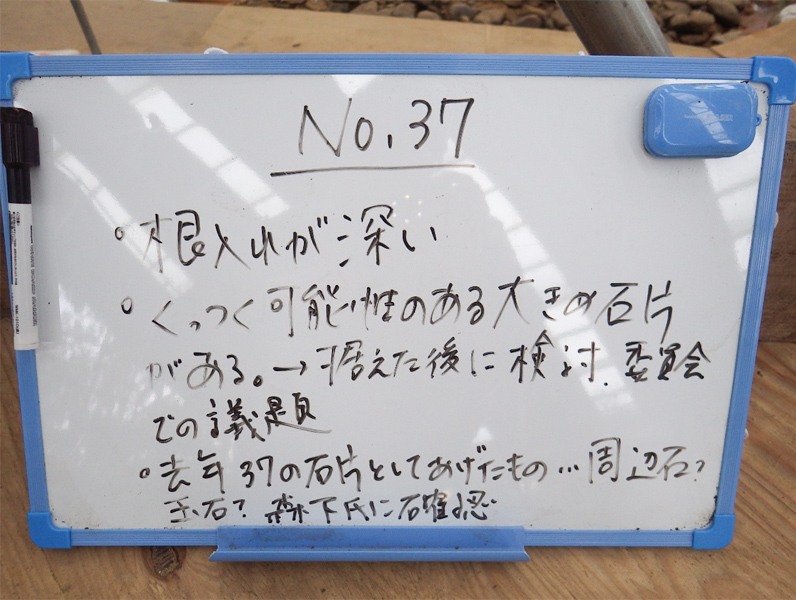 No.37
・根入れが深い
・くっつく可能性のある大きめ石片
がある。→据えた後に検討.委員会
での議題
・去年37の石片としてあげたもの…周辺石?
玉石? 森下氏に石確認